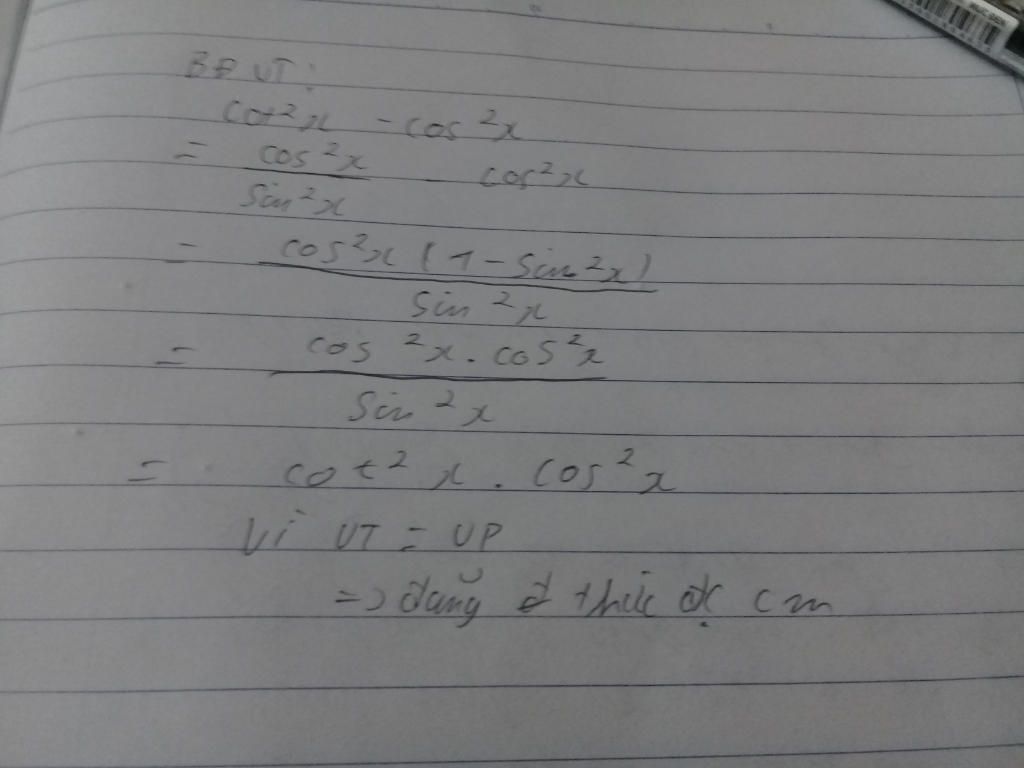 BĐ VT:
cot²x - cos²x
= cos²x / sin²x - cos²x
= cos²x (1 - sin²x) / sin²x
= cos²x . cos²x / sin²x
= cot²x . cos²x
Vì VT = VP
=> đẳng đ thức đc cm